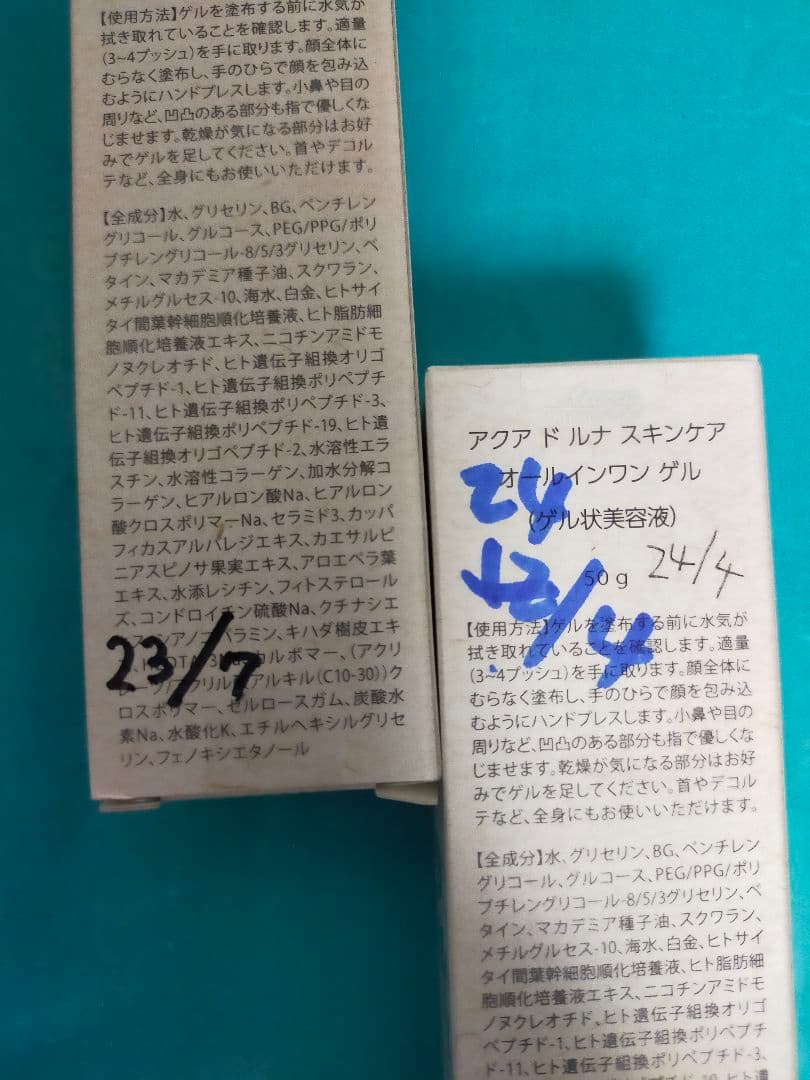 【使用方法】ゲルを塗布する前に水気が
拭き取れていることを確認します。適量
(3~4プッシュ)を手に取ります。顔全体に
むらなく塗布し、手のひらで顔を包み込
むようにハンドプレスします。小鼻や目の
周りなど、凹凸のある部分も指で優しくな
じませます。乾燥が気になる部分はお好
みでゲルを足してください。首やデコル
テなど、全身にもお使いいただけます。
【全成分】水、グリセリン、BG、ペンチレン
グリコール、グルコース、PEG/PPG/ポリ
ブチレングリコール-8/5/3グリセリン、ベ
タイン、マカデミア種子油、スクワラン、
メチルグルセス-10、海水、白金、ヒトサイ
タイ間葉幹細胞順化培養液、ヒト脂肪細
胞順化培養液エキス、ニコチンアミドモ
ノヌクレオチド、ヒト遺伝子組換オリゴ
ペプチド-1、ヒト遺伝子組換ポリペプチ
ド-11、ヒト遺伝子組換ポリペプチド-3、
ヒト遺伝子組換ポリペプチド-19、ヒト遺
伝子組換オリゴペプチド-2、水溶性エラ
スチン、水溶性コラーゲン、加水分解コ
ラーゲン、ヒアルロン酸Na、ヒアルロン
酸クロスポリマーNa、セラミド3、カッパ
フィカスアルバレジエキス、カエサルピ
ニアスピノサ果実エキス、アロエベラ葉
エキス、水添レシチン、フィトステロール
ズ、コンドロイチン硫酸Na、クチナシエ
シアノコバラミン、キハダ樹皮エキ
カルボマー、(アクリ
アルキル(C10-30))ク
ロスポリマー、セルロースガム、炭酸水
素Na、水酸化K、エチルヘキシルグリセ
リン、フェノキシエタノール
23/7
アクア ド ルナ スキンケア
オールインワン ゲル
(ゲル状美容液)
50g
24/4
24
/4
【使用方法】ゲルを塗布する前に水気が
拭き取れていることを確認します。適量
(3~4プッシュ)を手に取ります。顔全体に
むらなく塗布し、手のひらで顔を包み込
むようにハンドプレスします。小鼻や目の
周りなど、凹凸のある部分も指で優しくな
じませます。乾燥が気になる部分はお好
みでゲルを足してください。首やデコル
テなど、全身にもお使いいただけます。
【全成分】水、グリセリン、BG、ペンチレン
グリコール、グルコース、PEG/PPG/ポリ
ブチレングリコール-8/5/3グリセリン、ベ
タイン、マカデミア種子油、スクワラン、
メチルグルセス-10、海水、白金、ヒトサイ
タイ間葉幹細胞順化培養液、ヒト脂肪細
胞順化培養液エキス、ニコチンアミドモ
ノヌクレオチド、ヒト遺伝子組換オリゴ
ペプチド-1、ヒト遺伝子組換ポリペプチ
ド-11、ヒト遺伝子組換ポリペプチド-3、